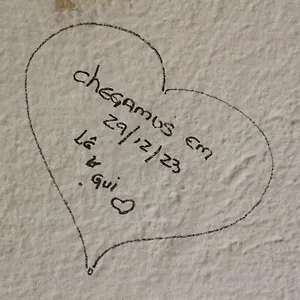 chEGAMOS EM
29/12/23
LÊ &
GUI ♡